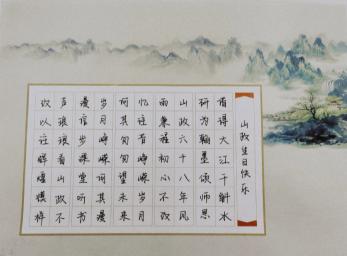 山政生日快乐
借得大江千斛水
研为翰墨颂师恩
山政六十八年风
雨兼程初心不改
忆往昔峥嵘岁月
何其匆匆望未来
岁月峥嵘何其漫
漫信步课堂听书
声琅琅看山政不
改以往辉煌模样